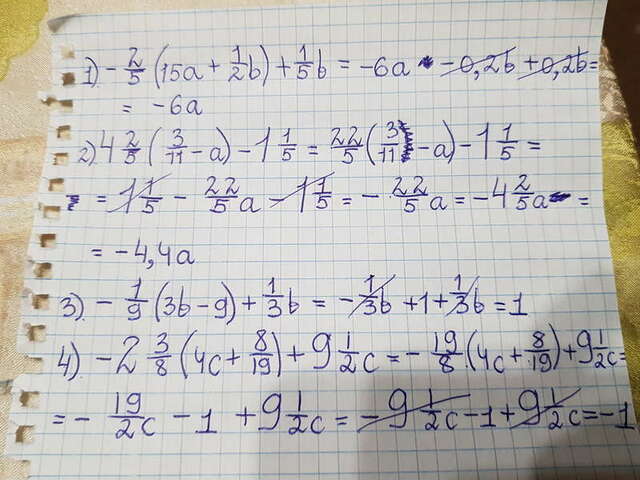 1) -2/5(15a + 1/2b) + 1/5b = -6a - 0,2b + 0,2b =
= -6a
2) 4 2/5(3/11 - a) - 1 1/5 = 22/5(3/11 - a) - 1 1/5 =
= 1 1/5 - 22/5a - 1 1/5 = - 22/5a = -4 2/5a =
= -4,4a
3) -1/9(3b - 9) + 1/3b = -1/3b + 1 + 1/3b = 1
4) -2 3/8(4c + 8/19) + 9 1/2c = -19/8(4c + 8/19) + 9 1/2c =
= -19/2c - 1 + 9 1/2c = -9 1/2c - 1 + 9 1/2c = -1